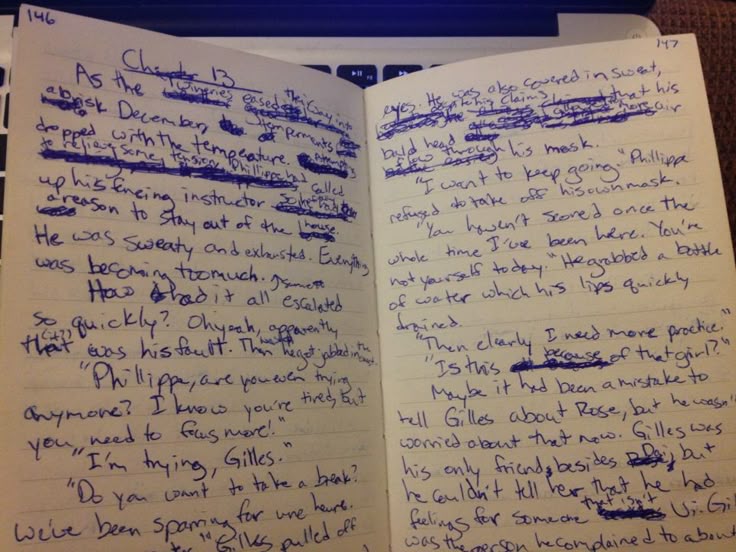 146
Chapter 13
As the wineries eased their way into
a brisk December, his
dropped with the temperature.
to relieve some tension, Phillippe had called
up his fencing instructor
a reason to stay out of the house.
He was sweaty and exhausted. Everything
was becoming too much.
How had it all escalated
so quickly? Oh yeah, apparently
that was his fault. Then he got jabbed in the
"Phillippe, are you even trying
anymore? I know you're tired, but
you need to focus more!"
"I'm trying, Gilles."
"Do you want to take a break?
We've been sparring for hours.
" Gilles pulled off
147
eyes. He was also covered in sweat,
that his
bald head air
flow through his mask.
"I want to keep going." Phillippe
refused to take off his own mask.
"You haven't scored once the
whole time I've been here. You're
not yourself today." He grabbed a bottle
of water which his lips quickly
drained.
"Then clearly I need more practice."
"Is this because of that girl?"
Maybe it had been a mistake to
tell Gilles about Rose, but he wasn't
worried about that now. Gilles was
his only friend, besides , but
he couldn't tell her that he had
feelings for someone that isn't
was the person he complained to about